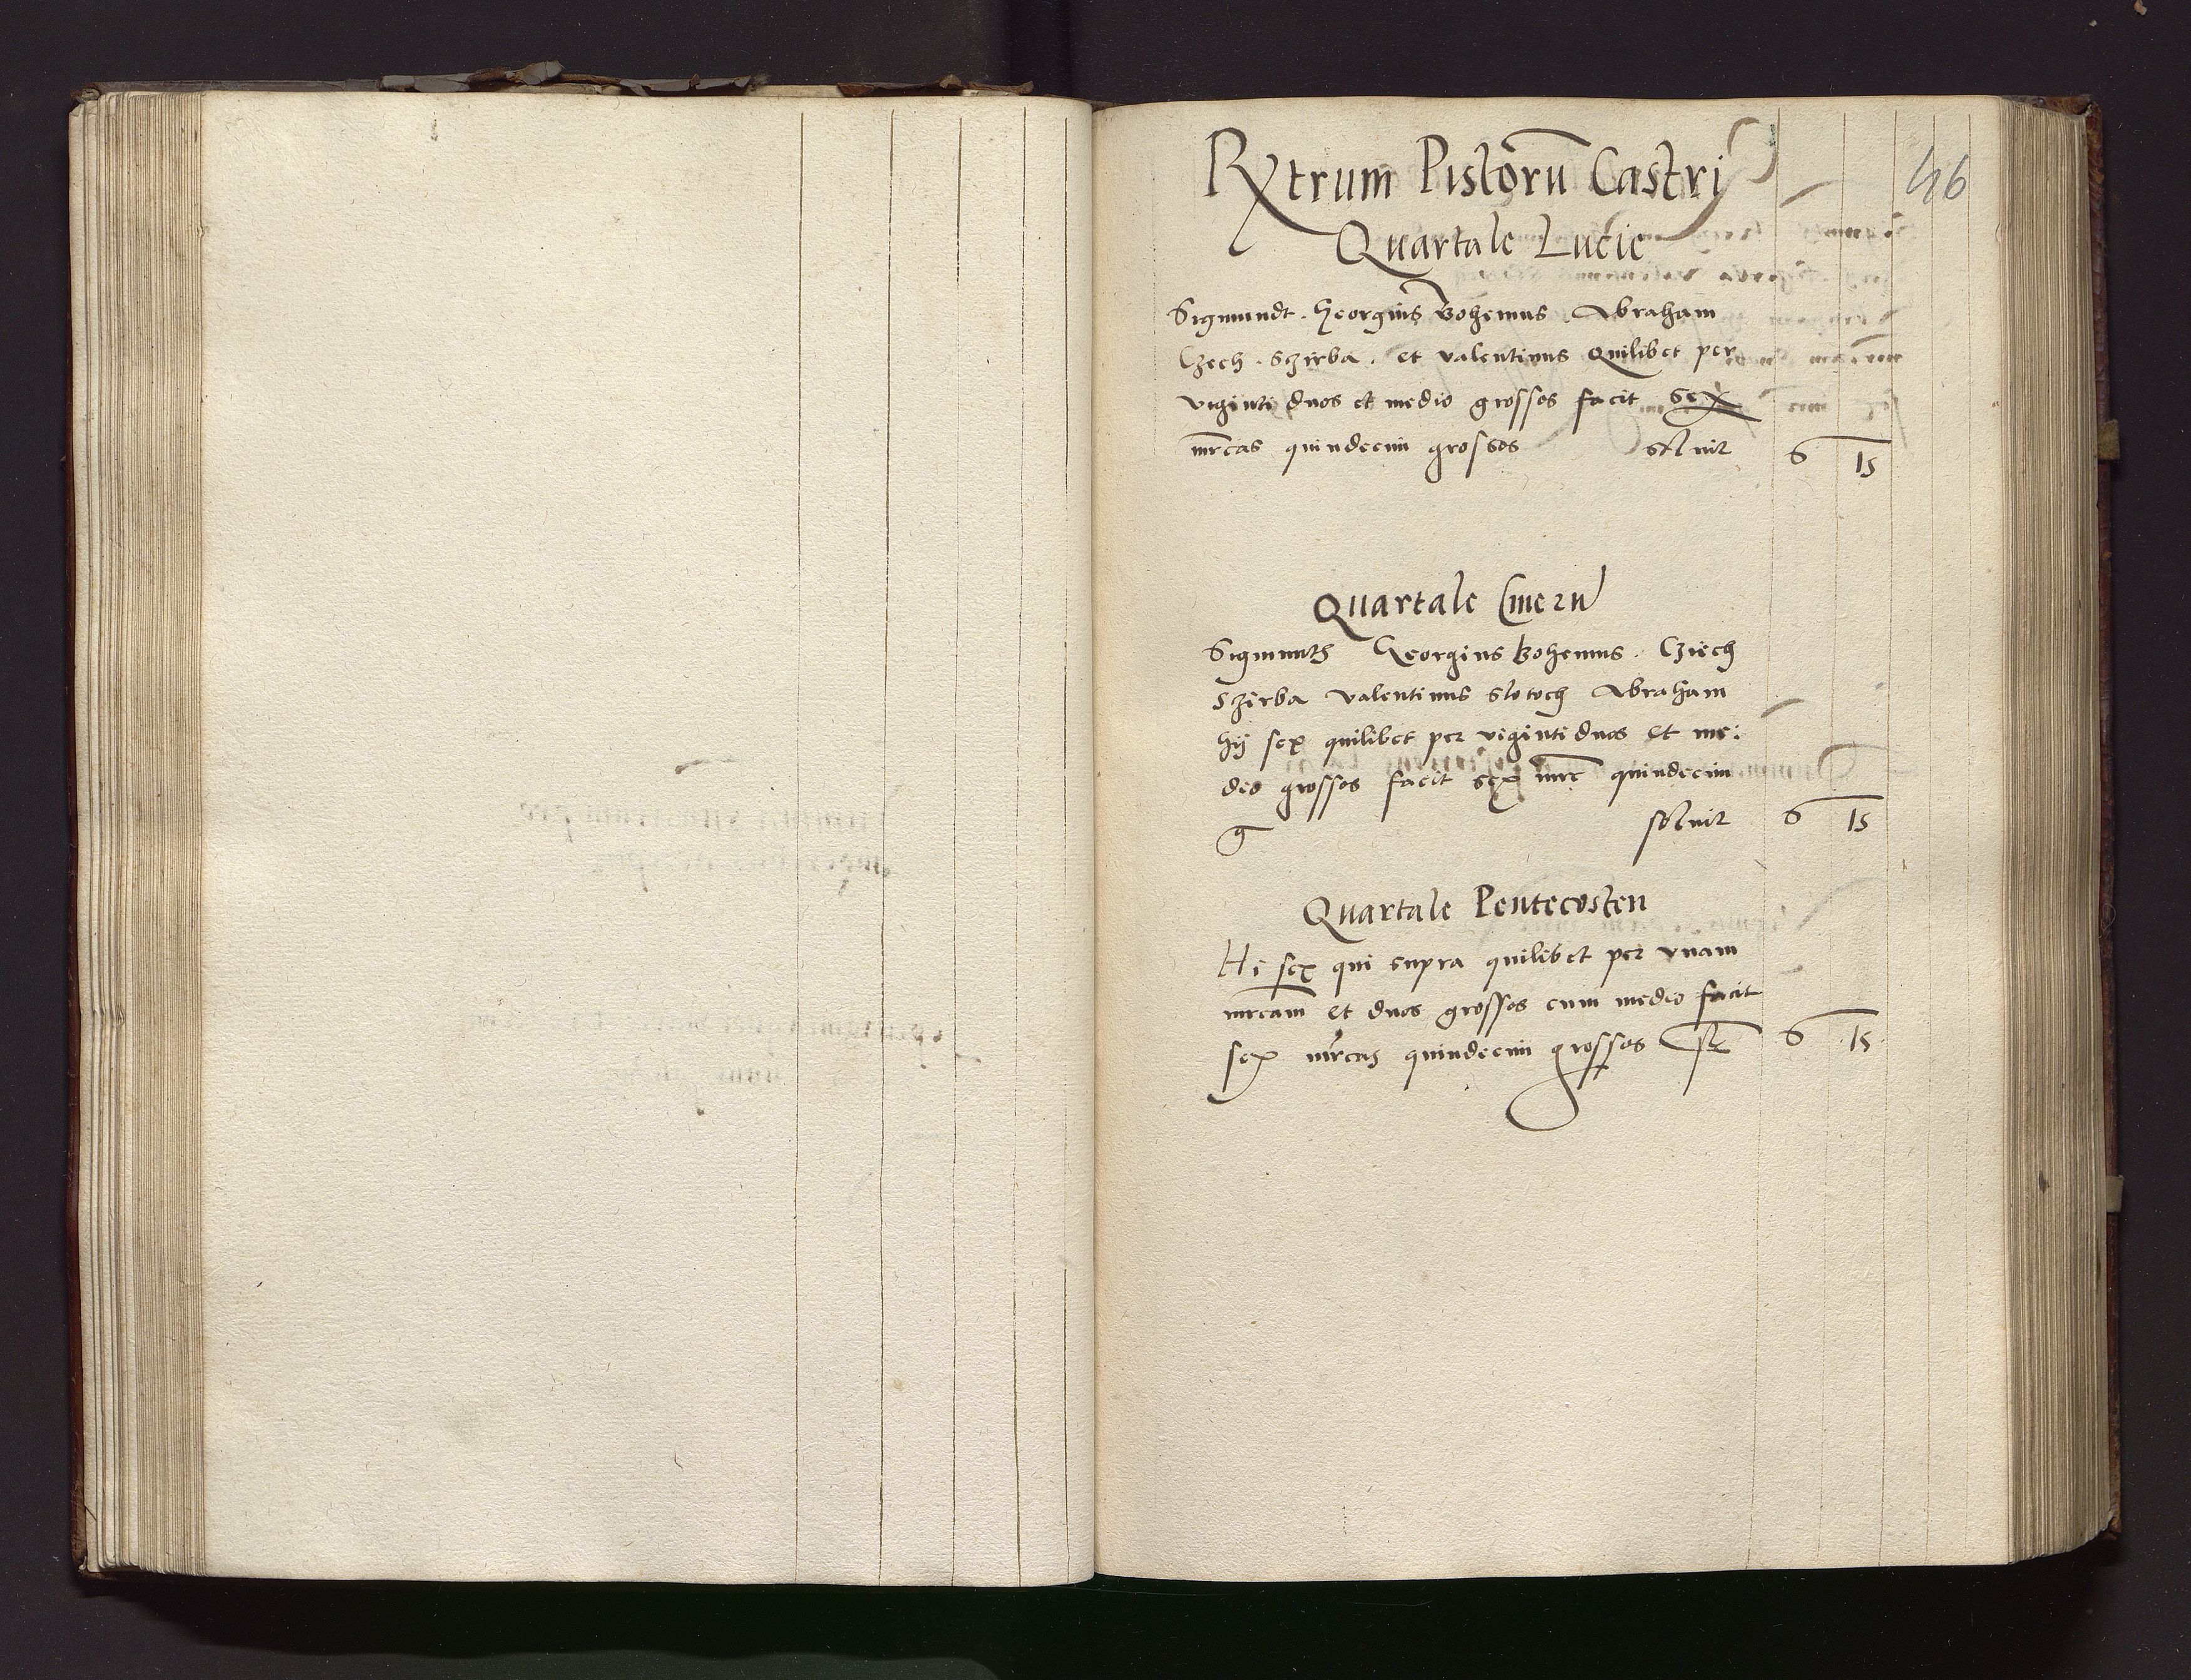 46
Rxtrum Pistorū Castri
Quartale Lucie
Sigmundt. Georgius Bohemus. Abraham
Czech. Szirba. et valentinus Quilibet per
viginti duos et medio grossos facit Sex
mrcas quindecim grossos soluit 6 15
Quartale Cinerū
Sigmunth Georgius Bohemus. Cziech
Szirba valentinus slotoch Abraham
hij sex quilibet per viginti duos et me:
dio grossos facit sex mrc quindecim
g soluit 6 15
Quartale Pentecosten
Hi sex qui supra quilibet per vnam
mrcam et duos grossos cum medio facit
sex mrcas quindecim grossos st 6 15